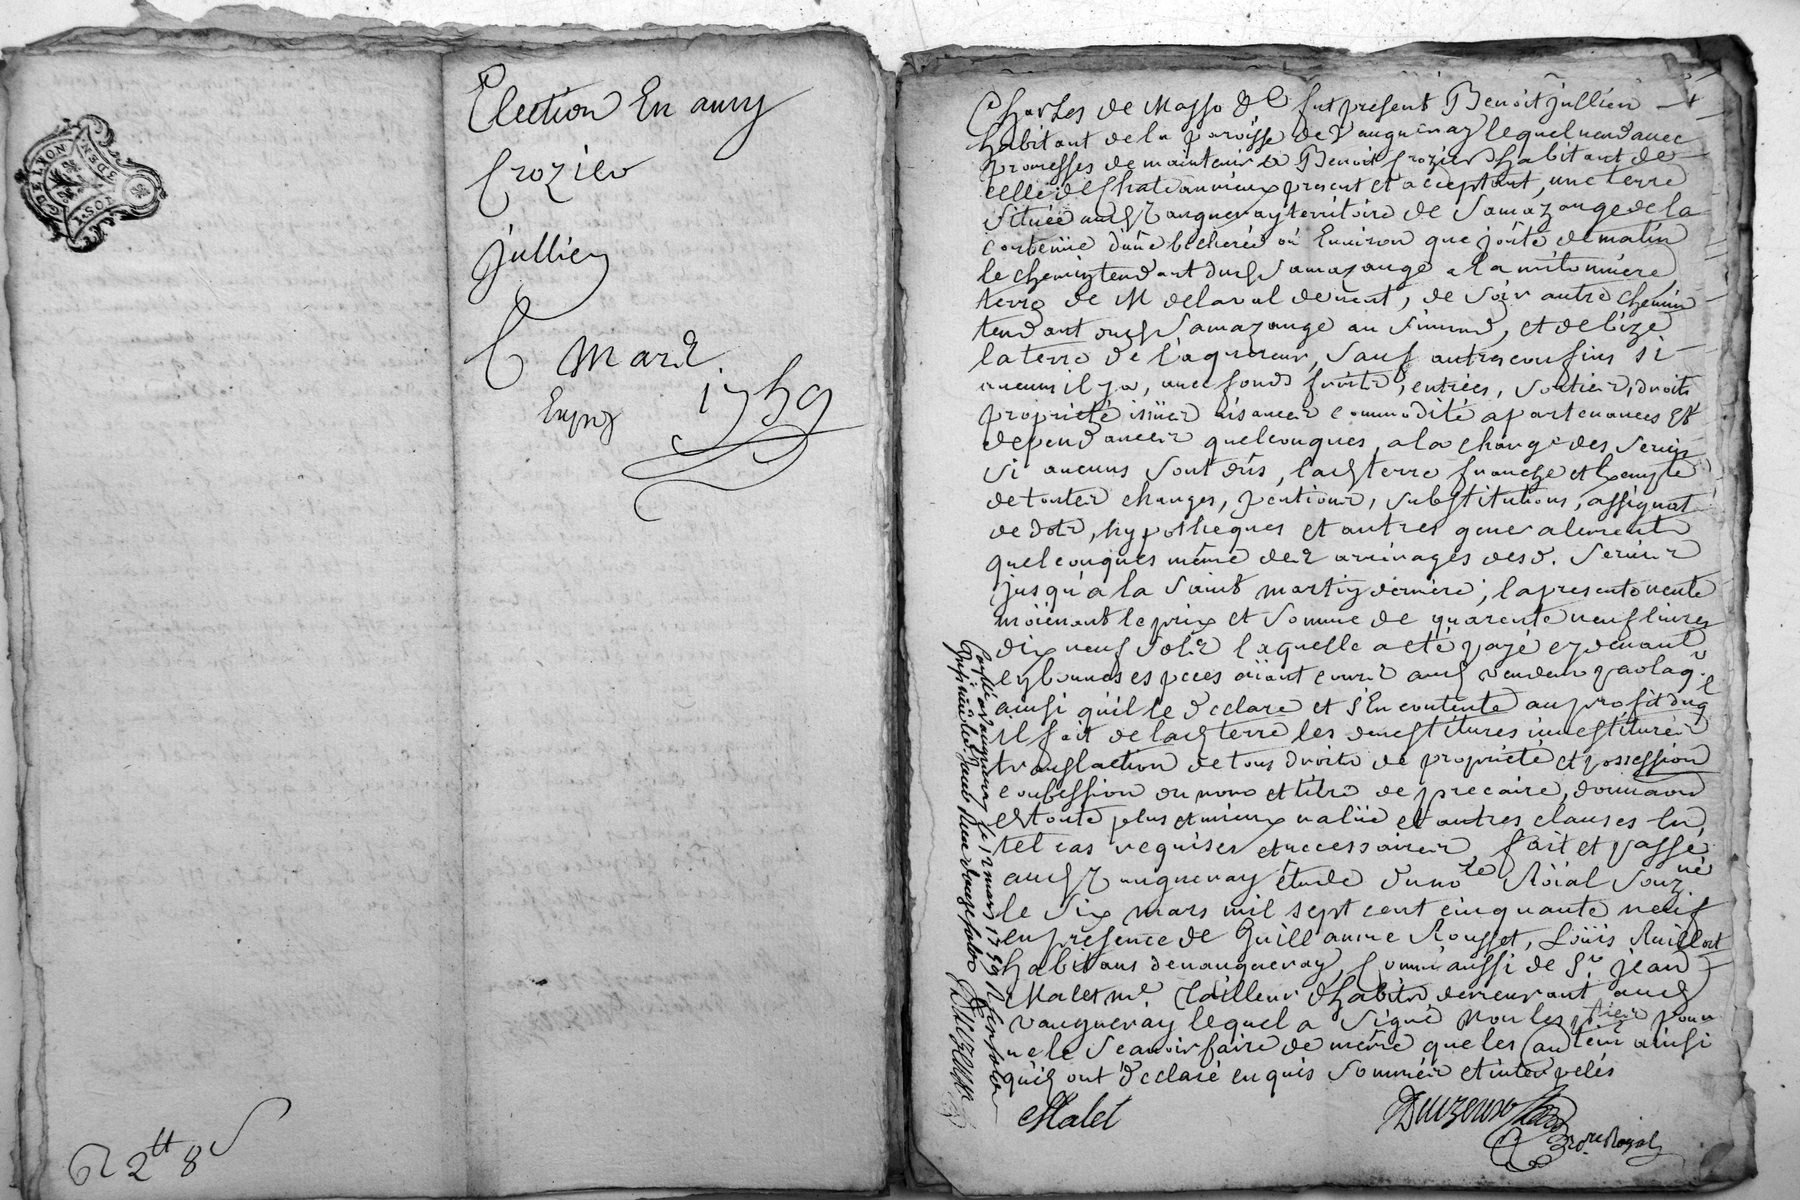 G. DE LYON
SOLS
DEN
Election En amy
Crozier
jullien
6 Mard
Exprès 1759
R 2tt 8s
Charles de Masso &c fut présent Benoit jullien
habitant de la paroisse de Vaugneray lequel vend avec
promesses de maintenir à Benoit Crozier habitant de
celle de Chateauvieux present et acceptant, une terre
Située aud. Vaugneray territoire de Samazange de la
contenüe d'une bicherée où Environ que joûte de matin
le chemin tendant dud. Samazange a la mitonniere
terre de M delaval de vent, de soir autre chemin
tendant dud. Samazange au Simond, et de bize
la terre de l'aquereur, sauf autres confins si
aucuns il y a, avec fonds fruits, entrées, sorties, droits
propriété issües aisances commodité apartenances Et
dependances quelconques, a la charge des Servis
Si aucuns sont dûs, lad. terre franche et Exempte
de toutes charges, pentions, substitutions, assignat
de dots, hypothèques et autres generalement
quelconques même des arrérages desd. Servis
jusqu'a la Saint martin derniere, la presente vente
moïenant le prix et Somme de quarente neuf livres
dix neuf sols laquelle a eté payé cy devant
en bonnes especes aïant cours aud. vendeur par laq.r
ainsi qu'il le declare et s'En contente au profit duql
il fait de lad. terre les devestitures investitures
translaction de tous droits de proprieté et possession
confession du nom et titre de precaire, donnaon
de toute plus et mieux valüe et autres clauses En
tel cas requises et necessaires fait et passé
aud. Vaugneray étude du no.re Roïal Souz.né
le Six mars mil sept cent cinquante neuf
en presence de Guillaume Rousset, Loüis
habitans de vaugneray, comm'aussi de S.r jean
Malet m.e Tailleur d'habits demeurant aud.
vaugneray lequel a Signé Non les pties pour
ne le Scavoir faire de même que les autem ainsi
qu'ils ont declaré enquis sommés et interpelés
Malet
no.re Royal
Con.llé a Vaugneray le 12 mars 1759